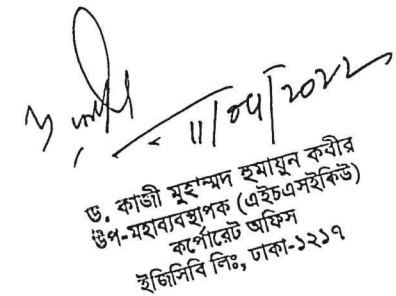 ১১/০৭/২০২২
ড. কাজী মুহাম্মদ হুমায়ুন কবীর
উপ-মহাব্যবস্থাপক (এইচএসইকিউ)
কর্পোরেট অফিস
ইজিসিবি লিঃ, ঢাকা-১২১৭